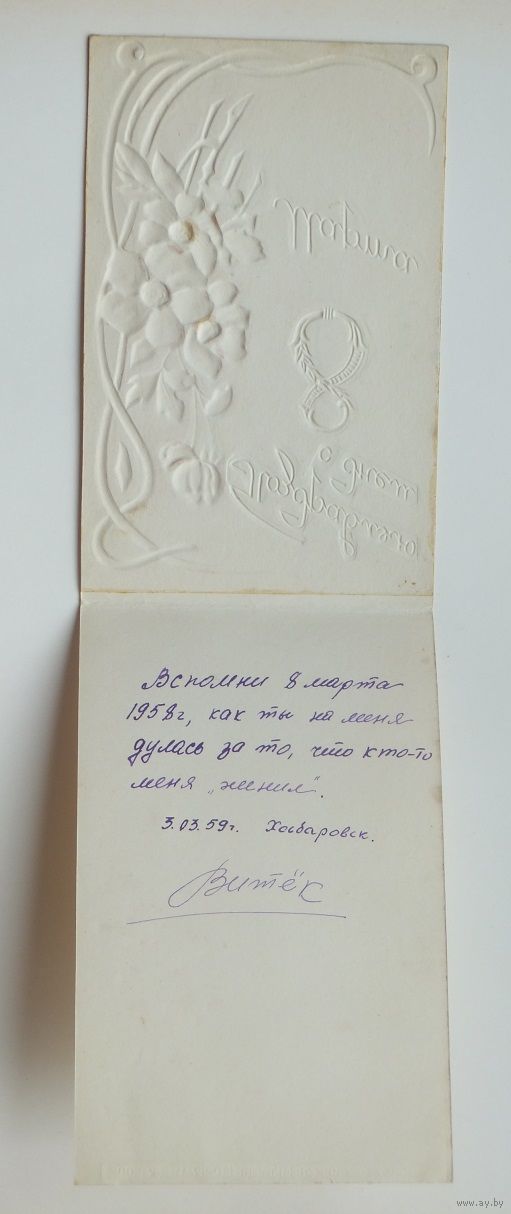 Поздравляю
с днем
8
Марта
Вспомни 8 марта
1958г, как ты на меня
дулась за то, что кто-то
меня „женил".
3.03.59г. Хабаровск.
Витёк
www.ay.by